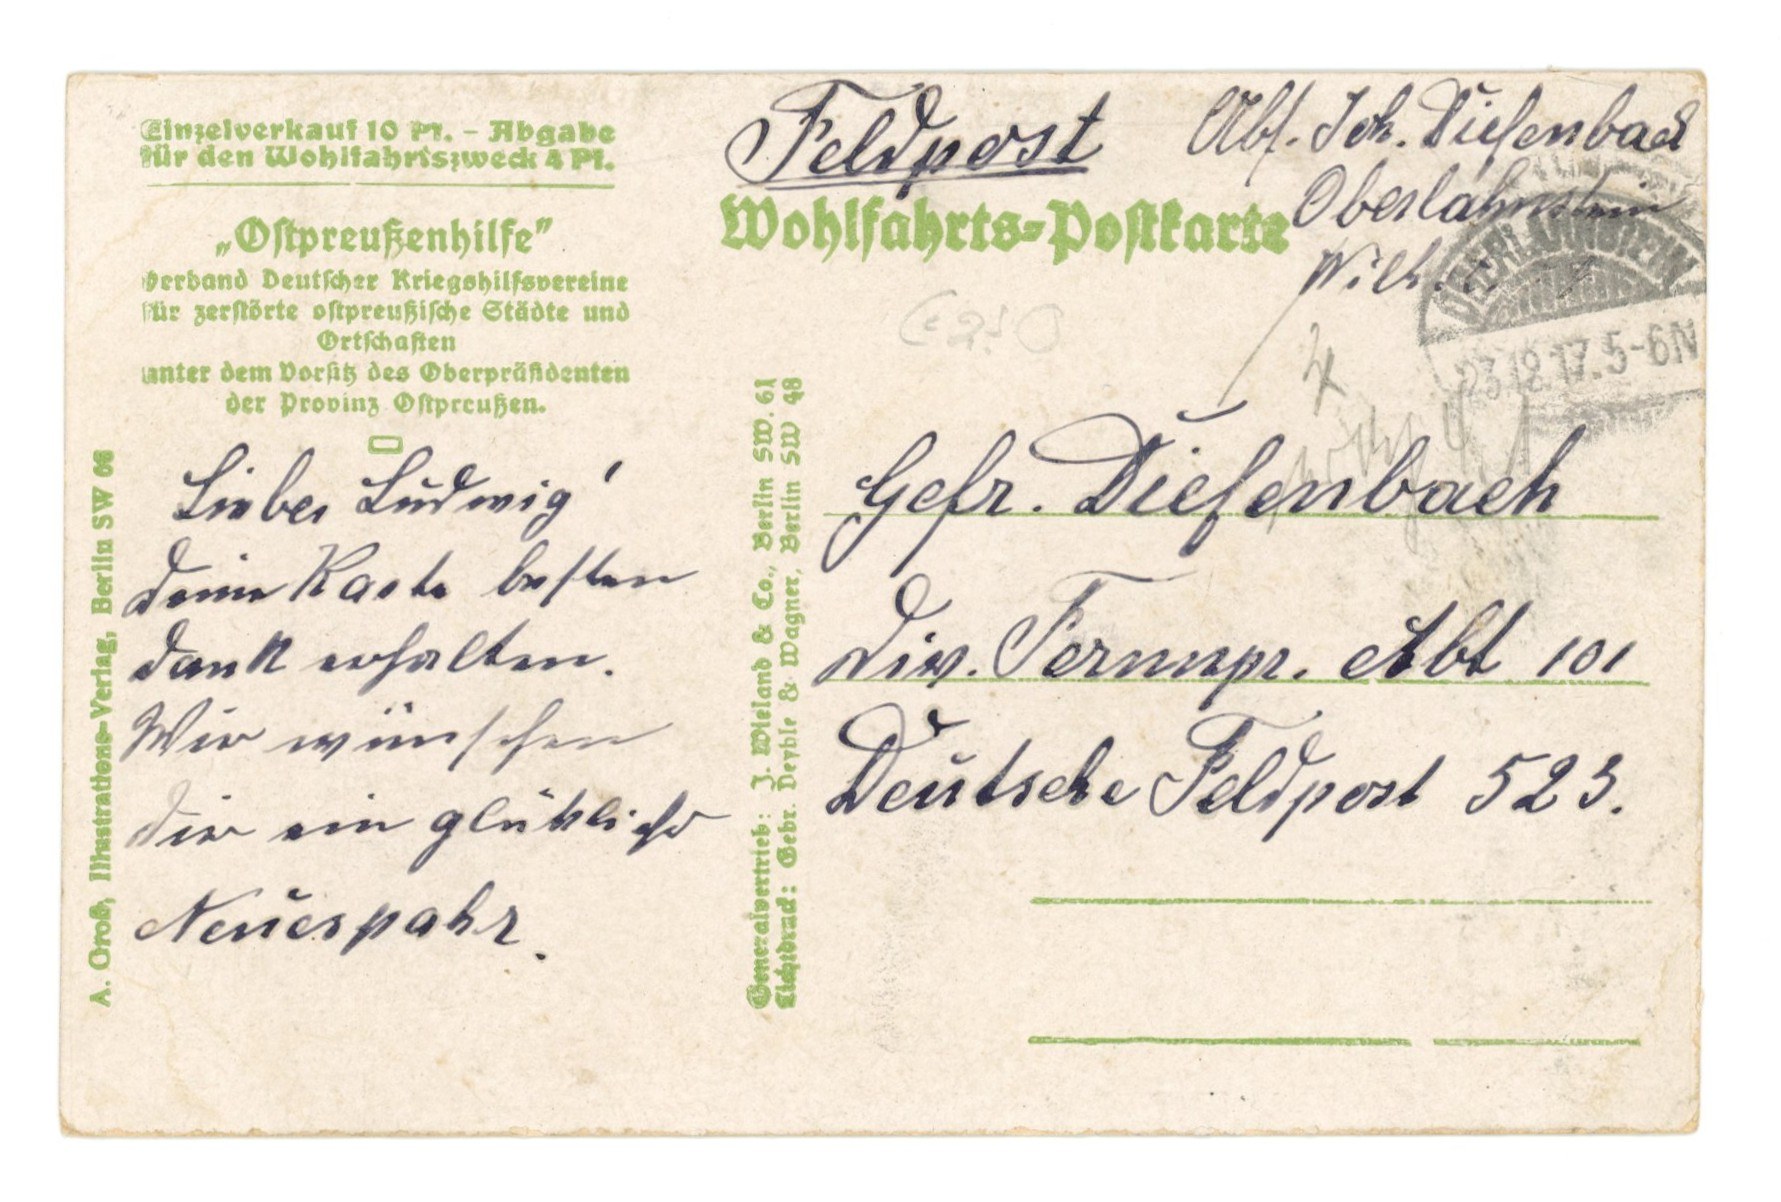 Einzelverkauf 10 Pf. – Abgabe
für den Wohlfahrtszweck 4 Pf.
„Ostpreußenhilfe”
Verband Deutscher Kriegshilfsvereine
für zerstörte ostpreußische Städte und
Ortschaften
unter dem Vorsitz des Oberpräsidenten
der Provinz Ostpreußen.
Lieber Ludwig!
deine Karte besten
dank erhalten.
Wir wünschen
dir ein glükliche
Neuesjahr.
A. Groß, Illustrations-Verlag, Berlin SW 68
Generalvertrieb: J. Wieland & Co., Berlin SW. 61
Lichtdruck: Gebr. Deyhle & Wagner, Berlin SW 48
Feldpost
Wohlfahrts-Postkarte
Abs. Joh. Diefenbach
Oberlahnstein
OBERLAHNSTEIN
23.12.17.5-6N
Gefr. Diefenbach
Div. Fernspr. Abt 101
Deutsche Feldpost 523.